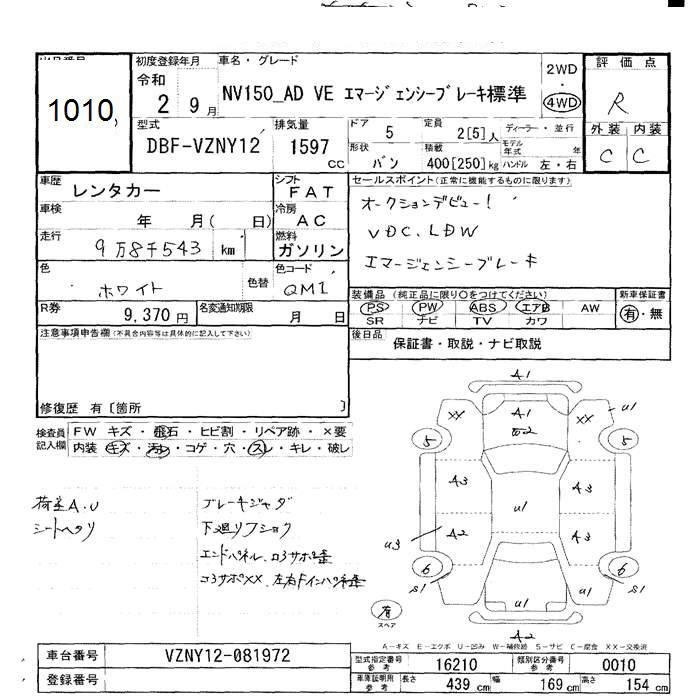 初度登録年月 車名・グレード 2WD ・ 4WD 評価点
1010
令和 2 9月 NV150_AD VE エマージェンシーブレーキ標準 R
型式 排気量 ドア 5 定員 2[5]人 ディーラー・並行 外装 内装
DBF-VZNY12 1597cc 形状 バン 積載 400[250]kg モデル年式 年 ハンドル 左・右 C C
車歴 レンタカー シフト FAT セールスポイント(正常に機能するものに限ります)
車検 年 月( 日) 冷房 AC オークションデビュー!
走行 9万8千543 km 燃料 ガソリン VDC、LDW
色 ホワイト 色替 色コード QM1 エマージェンシーブレーキ
R券 9,370円 名変通知期限 月 日 装備品(純正品に限り○をつけてください) 新車保証書
PS PW ABS エアB AW 有・無
SR ナビ TV カワ
注意事項申告欄(不具合内容等は具体的に記入して下さい) 後日品 保証書・取説・ナビ取説
修復歴 有〔箇所 〕
検査員記入欄 FW キズ・飛石・ヒビ割・リペア跡・×要
内装 キズ・汚れ・コゲ・穴・スレ・キレ・破レ
荷室A.U ブレーキジャダ
シートヘタリ 下廻リフショク
エンドパネル、コアサポ歪
コアサポXX、左右Fインパネ歪
A1
XX A1 XX U1
5 5
A3 A3
U1
U3 A2 A3
6 6
S1 S1
U1 U1
A2
有 スペア
A-キズ E-エクボ U-凹み W-補修跡 S-サビ C-腐食 XX-交換済
車台番号 VZNY12-081972 型式指定番号 参考 16210 類別区分番号 参考 0010
登録番号 車庫証明用 参考 長さ 439 cm 幅 169 cm 高さ 154 cm